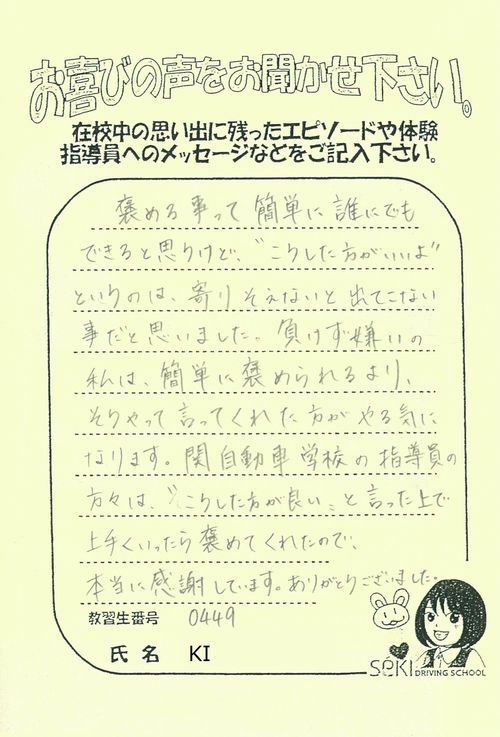 お喜びの声をお聞かせ下さい。
在校中の思い出に残ったエピソードや体験
指導員へのメッセージなどをご記入下さい。
褒める事って簡単に誰にでも
できると思うけど、"こうした方がいいよ"
というのは、寄りそえないと出てこない
事だと思いました。負けず嫌いの
私は、簡単に褒められるより、
そうやって言ってくれた方がやる気に
なります。関自動車学校の指導員の
方々は、"こうした方が良い"と言った上で
上手くいったら褒めてくれたので、
本当に感謝しています。ありがとうございました。
教習生番号 0449
氏名 KI
SEKI DRIVING SCHOOL